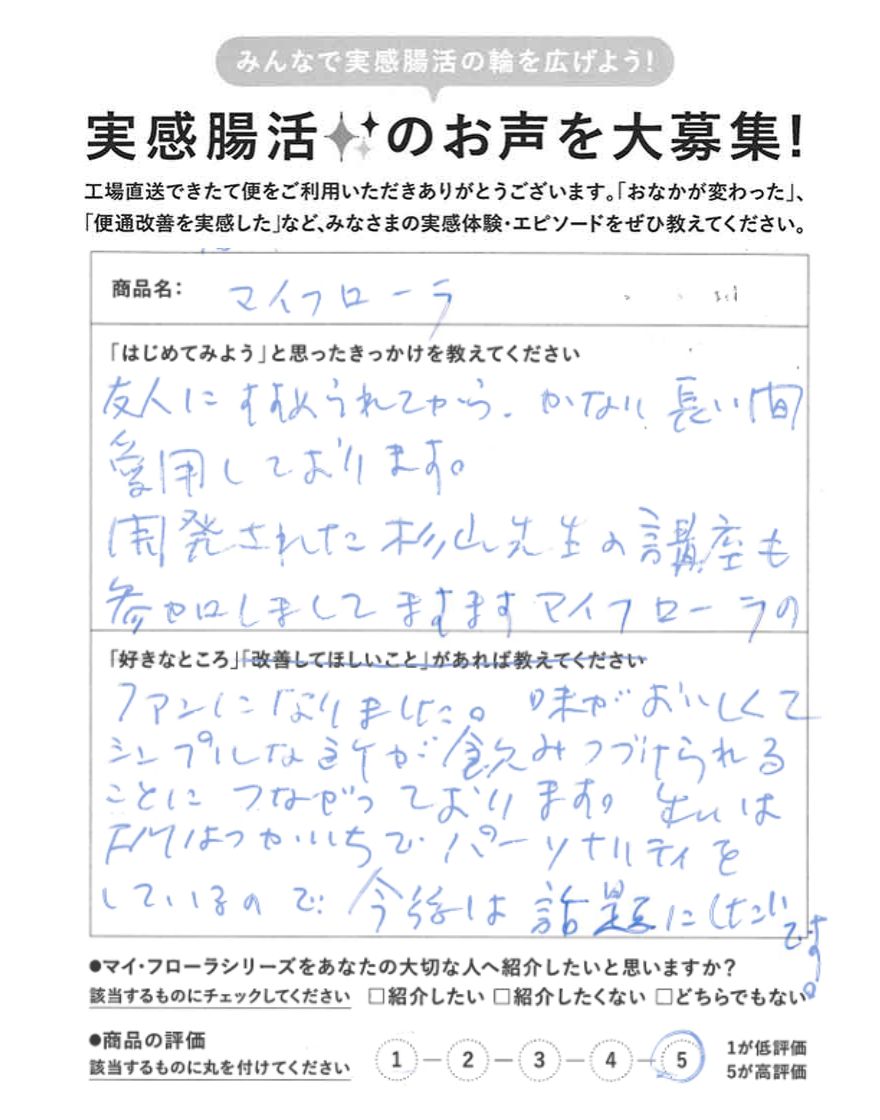 みんなで実感腸活の輪を広げよう!
実感腸活のお声を大募集!
工場直送できたて便をご利用いただきありがとうございます。「おなかが変わった」、
「便通改善を実感した」など、みなさまの実感体験・エピソードをぜひ教えてください。
商品名: マイフローラ
「はじめてみよう」と思ったきっかけを教えてください
友人にすすめられてから、かなり長い間
愛用しております。
開発された杉山先生の講座も
参加しましてますますマイフローラの
「好きなところ」「改善してほしいこと」があれば教えてください
ファンになりました。味がおいしくて
シンプルな所が飲みつづけられる
ことにつながっております。
FMはつかいちでパーソナリティを
しているので今後は話題にしたい
です。
●マイ・フローラシリーズをあなたの大切な人へ紹介したいと思いますか?
該当するものにチェックしてください □紹介したい □紹介したくない □どちらでもない
●商品の評価
該当するものに丸を付けてください 1 2 3 4 5 1が低評価
5が高評価